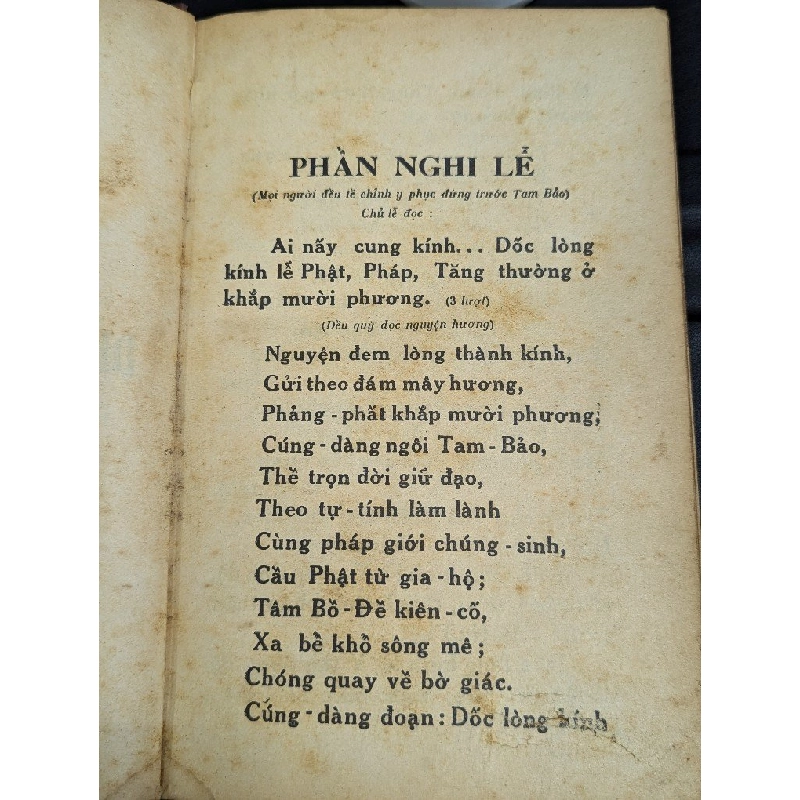 PHẦN NGHI LỄ
(Mọi người đều tề chỉnh y phục đứng trước Tam Bảo)
Chủ lễ đọc :
Ai nấy cung kính... Dốc lòng
kính lễ Phật, Pháp, Tăng thường ở
khắp mười phương. (3 lượt)
(Đều quỳ đọc nguyện hương)
Nguyện đem lòng thành kính,
Gửi theo đám mây hương,
Phảng - phất khắp mười phương,
Cúng - dàng ngôi Tam - Bảo,
Thề trọn đời giữ đạo,
Theo tự - tính làm lành
Cùng pháp giới chúng - sinh,
Cầu Phật từ gia - hộ ;
Tâm Bồ - Đề kiên - cố,
Xa bề khổ sông mê ;
Chóng quay về bờ giác.
Cúng - dàng đoạn : Dốc lòng kính